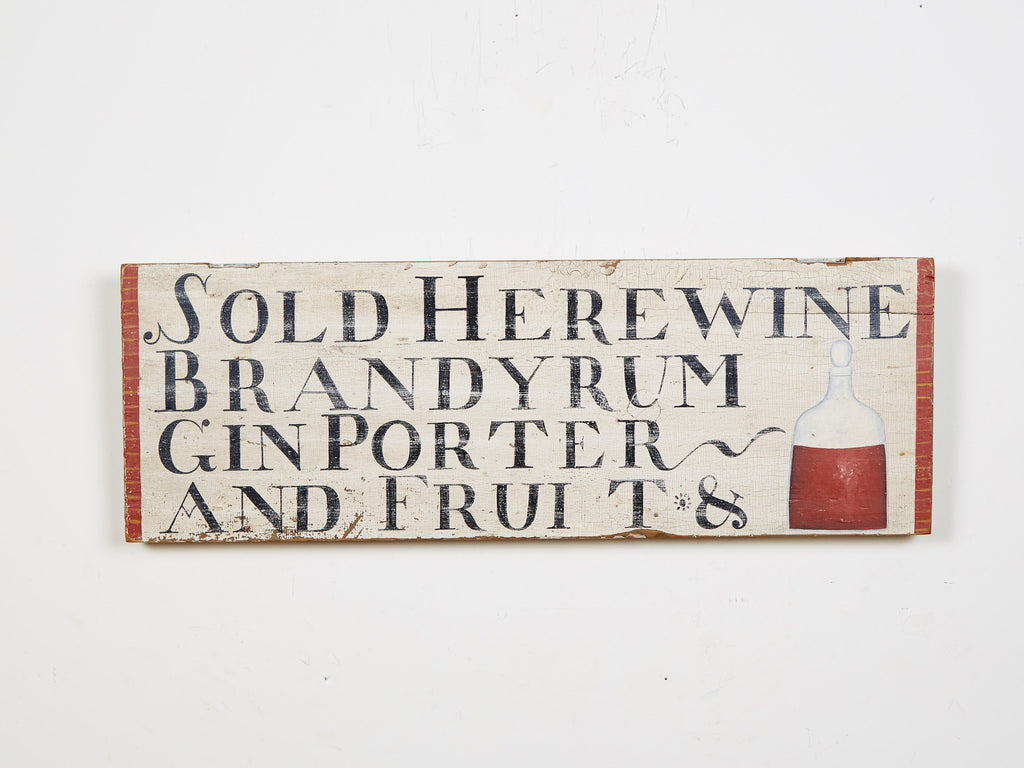 SOLD HEREWINE
BRANDYRUM
GIN PORTER
AND FRUI T &